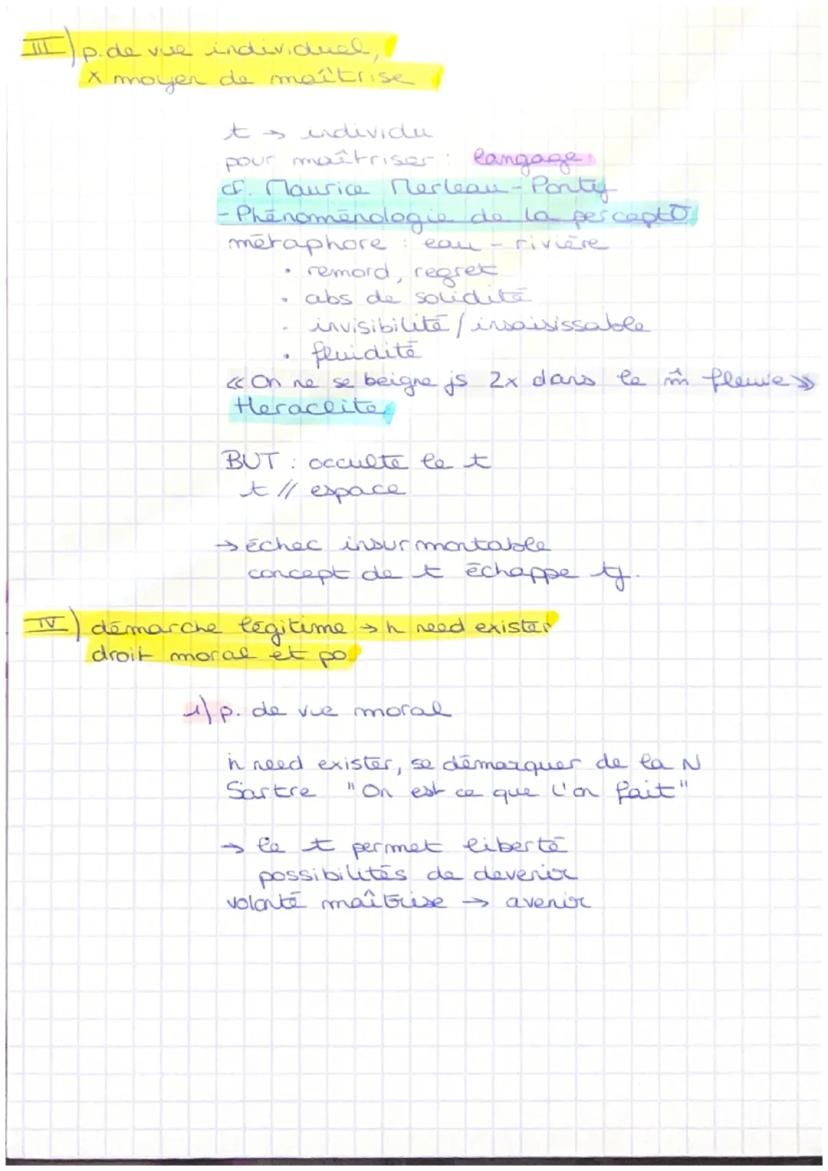 III) p. de vue individuel,
x moyen de maîtrise
t → individu
pour maîtriser : langage
cf. Maurice Merleau-Ponty
- Phénoménologie de la percept°
métaphore : eau - rivière
• remord, regret
• abs de solidité
• invisibilité / insaisissable
• fluidité
« On ne se beigne js 2x dans le m̂ fleuve »
Heraclite
BUT : occulte le t
t // espace
→ échec insurmontable
concept de t échappe tj.
IV) démarche légitime → h need exister
droit moral et po
1) p. de vue moral
h need exister, se démarquer de la N
Sartre "On est ce que l'on fait"
→ le t permet liberté
possibilités de devenir
volonté maîtrise → avenir